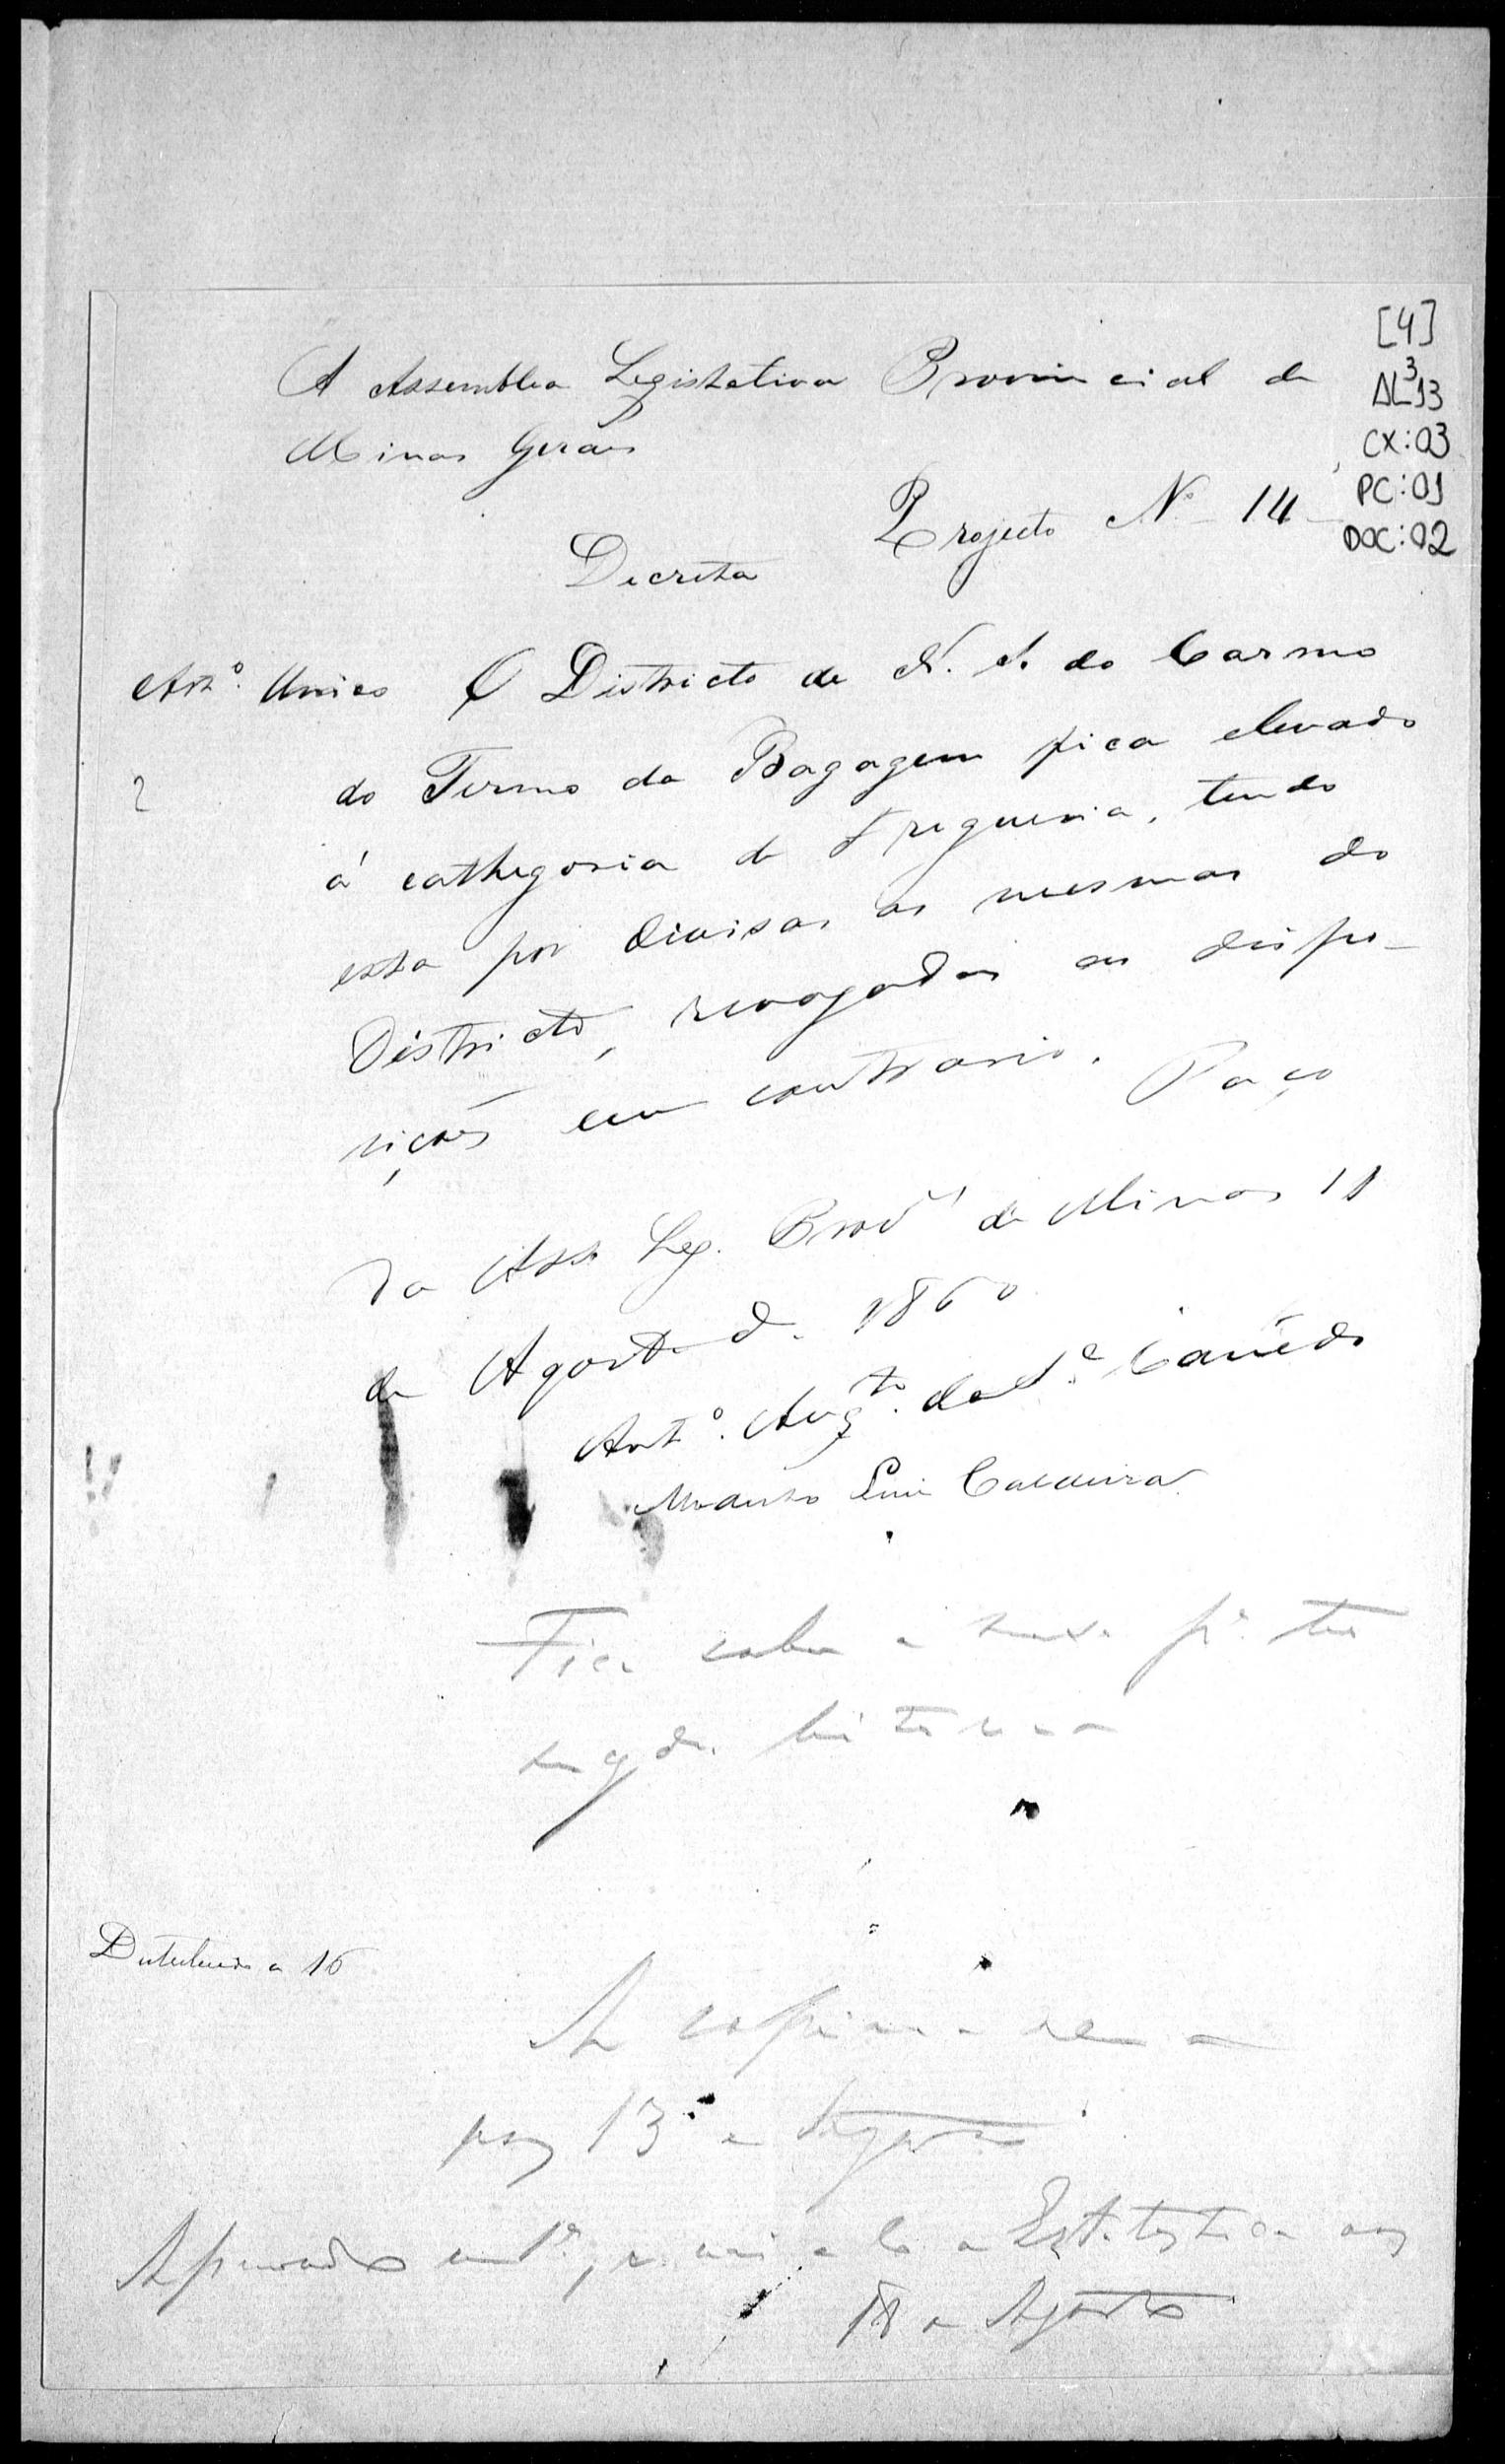 [4]
AL³13
CX:03
PC:01
DOC:02
A Assemblea Legislativa Provincial de
Minas Geraes
Projecto Nº 14
Decreta
Artº. Unico O Districto de N. S. do Carmo
do Termo da Bagagem fica elevado
á cathegoria de Freguesia, tendo
esta por divisas as mesmas do
Districto, revogadas as dispo-
sições em contrario. Paço
da Ass Leg. Provˡ de Minas 11
de Agosto de 1860
Antº. Augᵗᵒ. da Sᵃ. Canêdo
Modesto Luiz Caldeira
Fica sobre a
a 16
A copiar
13 de Agosto
Approvado em 1ª, a Estatistica aos
18 de Agosto